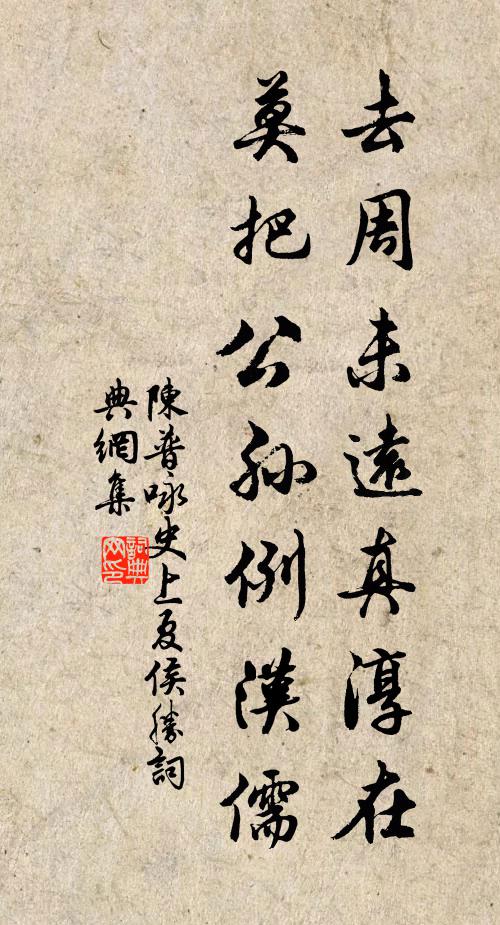 去周未遠真淳在
莫把公孙例漢儒
陳普咏史上夏侯勝詞
典網集
詞典
网印